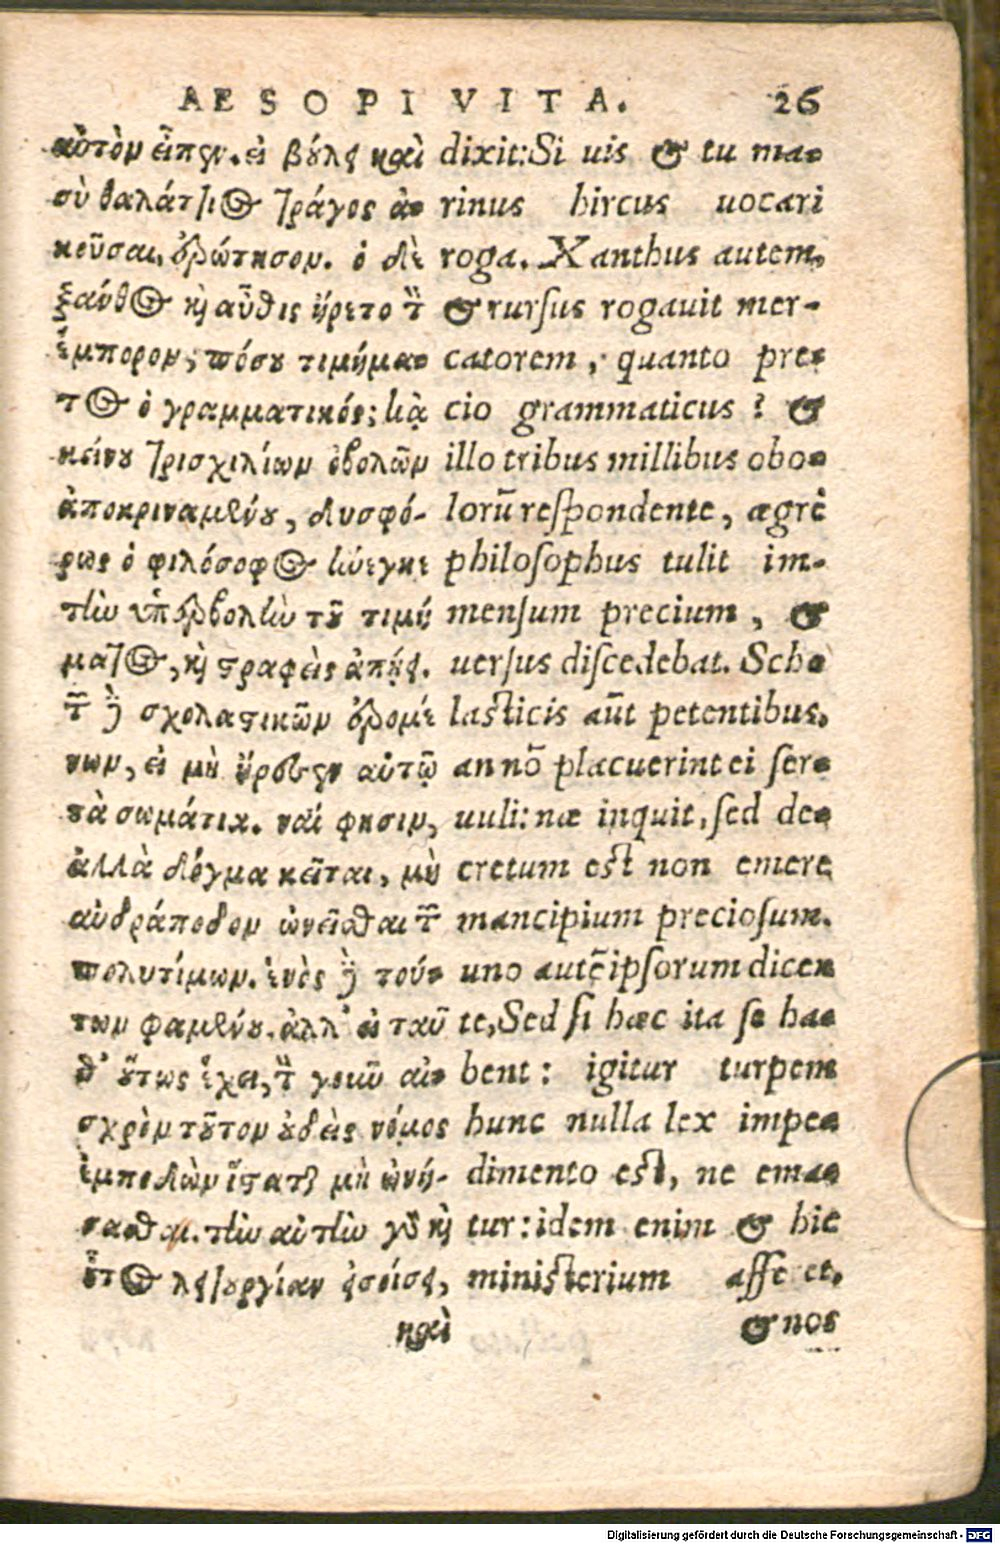 AESOPI VITA. 26
αὐτὸν εἶπεν. εἰ βούλει καὶ
σὺ θαλάττιος τράγος ἀ-
κοῦσαι, ἐρώτησον. ὁ δὲ
ξάνθος καὶ αὖθις ἤρετο τὸν
ἔμπορον, πόσου τιμήμα-
τος ὁ γραμματικός; κἀ-
κείνου τρισχιλίων ὀβολῶν
ἀποκριναμένου, δυσφό-
ρως ὁ φιλόσοφος ἤνεγκε
τὴν ὑπερβολὴν τοῦ τιμή
ματος, καὶ στραφεὶς ἀπῄει.
τῶν δὲ σχολαστικῶν ἐρομέ
νων, εἰ μὴ ἤρεσεν αὐτῷ
τὰ σωμάτια. ναί φησιν,
ἀλλὰ δόγμα κεῖται, μὴ
ἀνδράποδον ὠνεῖσθαι τῶν
πολυτίμων. ἑνὸς δὲ τού-
των φαμένου. ἀλλ' εἰ ταῦ
θ' οὕτως ἔχει, τὸν γοῦν αἰ-
σχρὸν τοῦτον οὐδεὶς νόμος
ἐμποδὼν ἵσταται μὴ ὠνή-
σασθαι. τὴν αὐτὴν γὰρ καὶ
οὗτος λειτουργίαν εἰσοίσει,
καὶ
dixit: Si uis & tu ma-
rinus hircus uocari
roga. Xanthus autem,
& rurſus rogauit mer-
catorem, quanto pre-
cio grammaticus? &
illo tribus millibus obo-
lorū reſpondente, ægrè
philoſophus tulit im-
menſum precium, &
uerſus diſcedebat. Scho
laſticis aūt petentibus,
an nō placuerint ei ſer-
uuli: næ inquit, ſed de-
cretum eſt non emere
mancipium precioſum.
uno autē ipſorum dicen
te, Sed ſi hæc ita ſe ha-
bent: igitur turpem
hunc nulla lex impe-
dimento eſt, ne ema-
tur: idem enim & hic
miniſterium afferet,
& nos
Digitalisierung gefördert durch die Deutsche Forschungsgemeinschaft - DFG